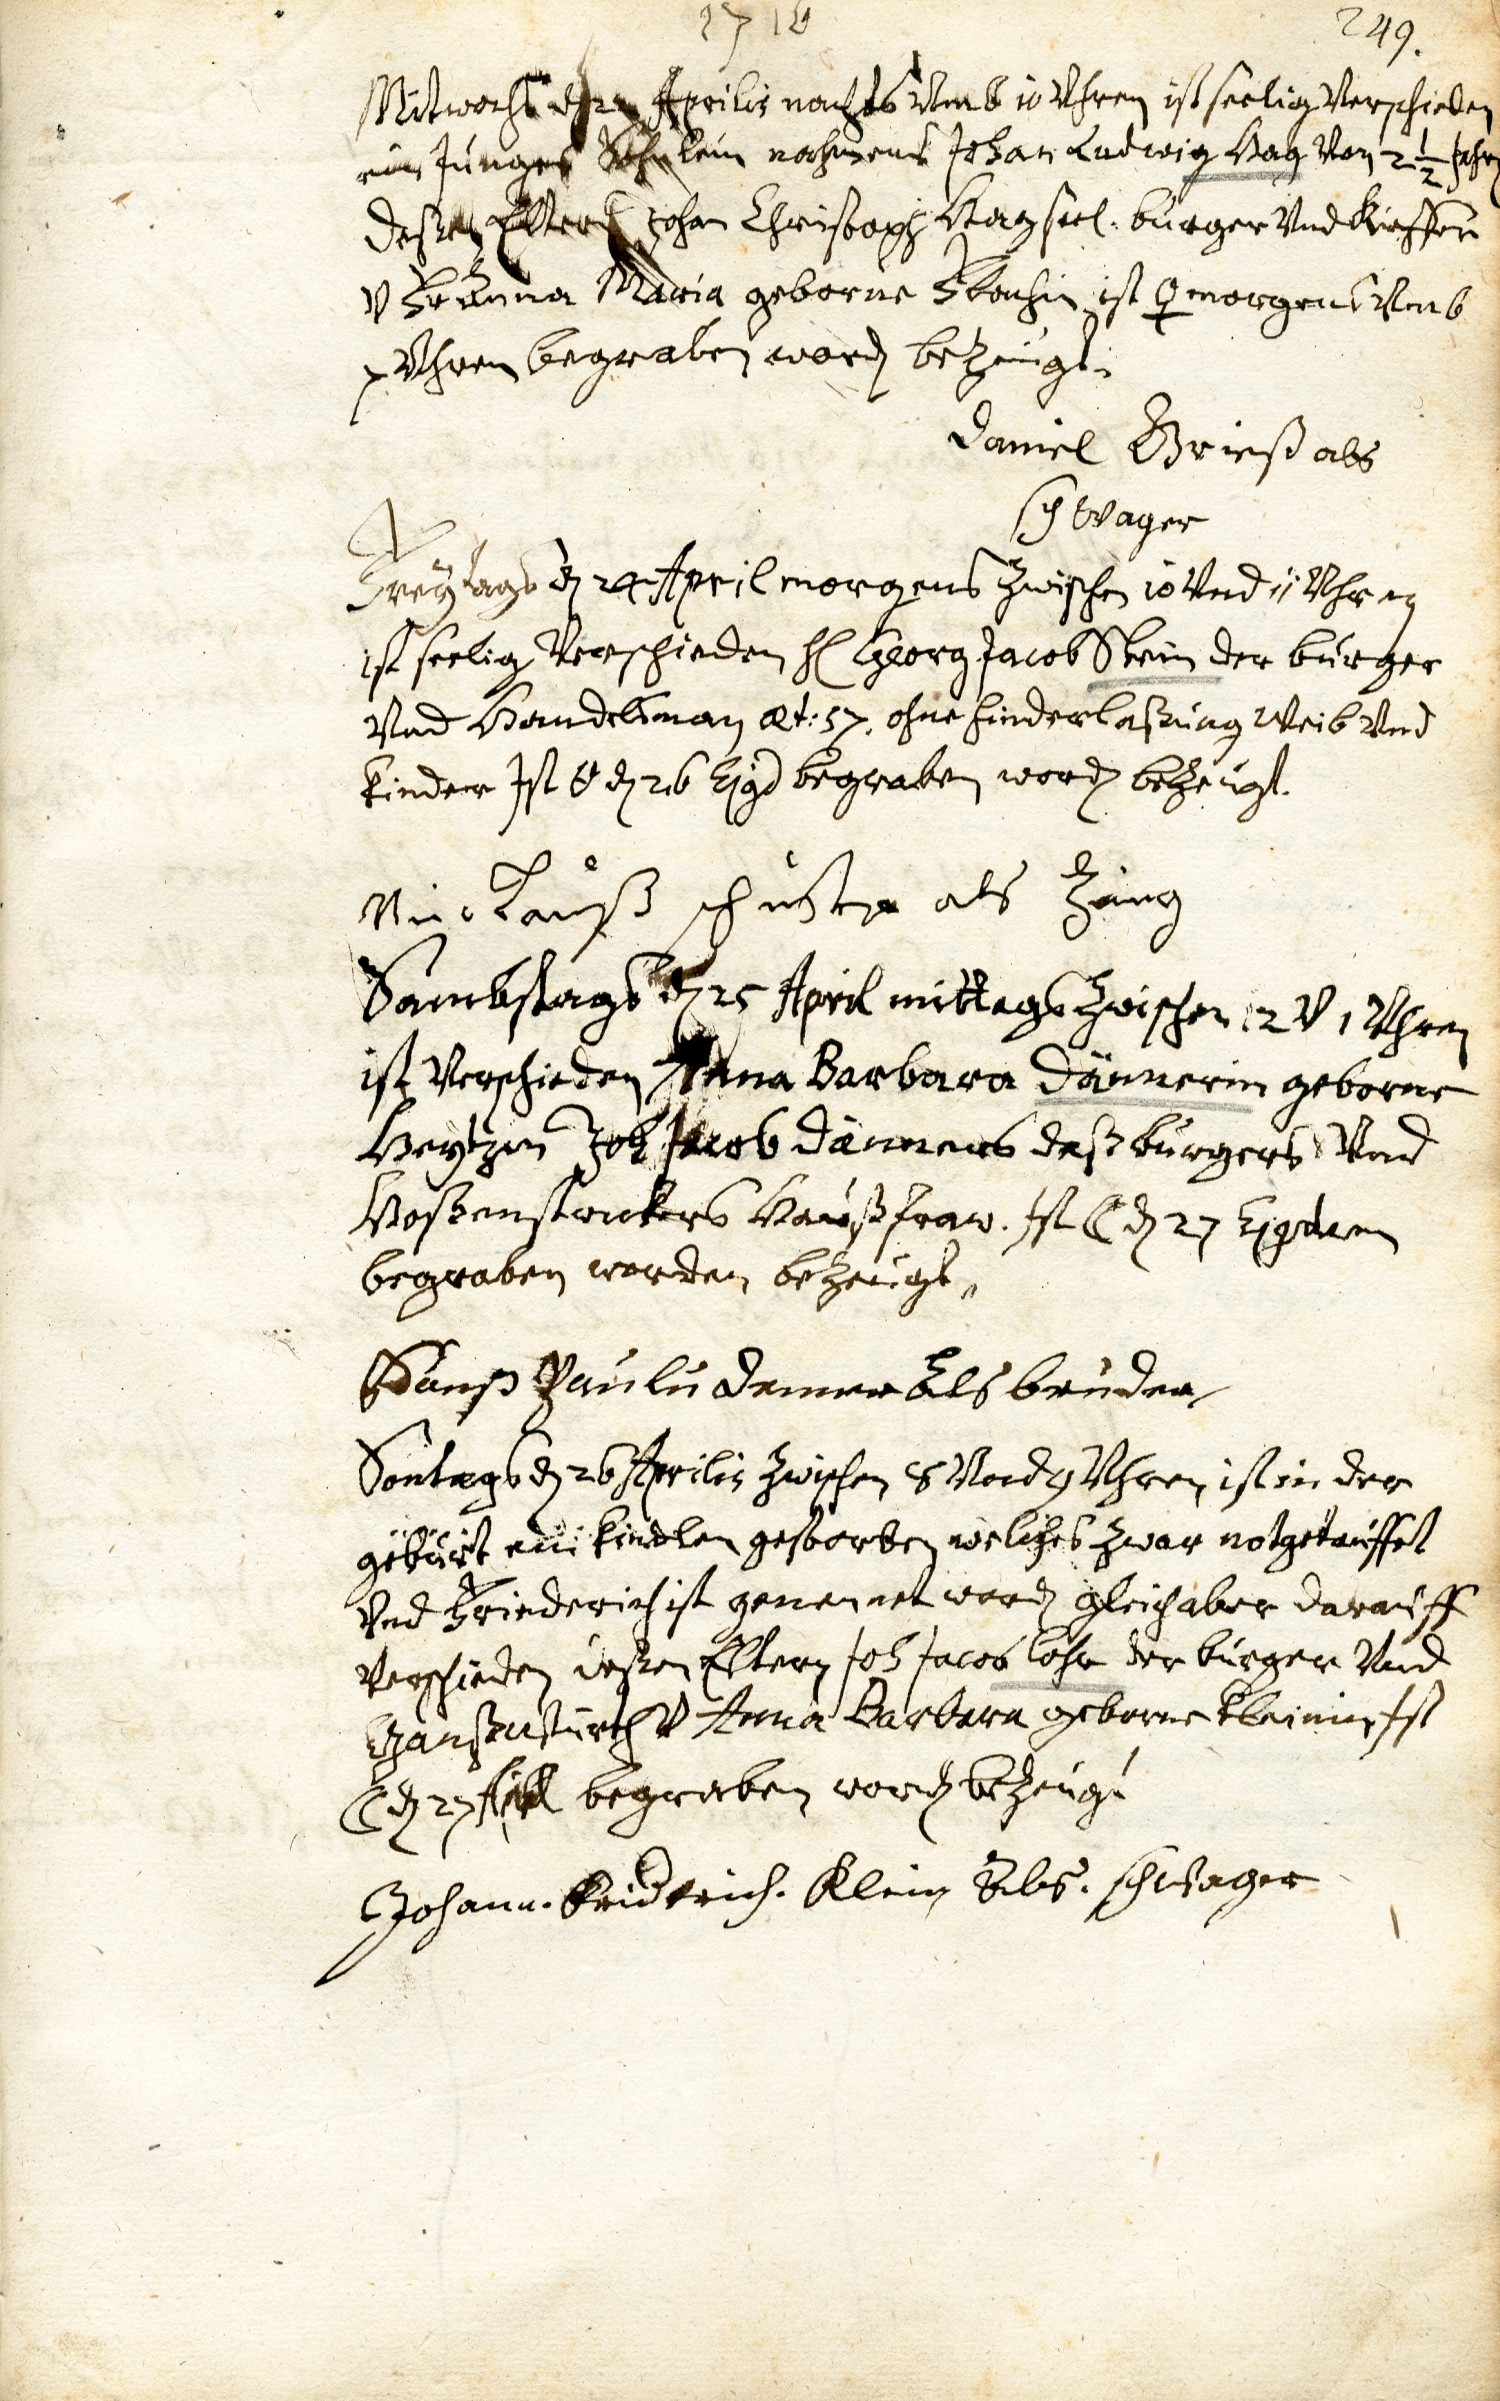 1716 249.
Mitwochs d 22 Aprilis nachts Umb 10 Uhren ist seelig Verschieden
ein Junges Söhnlein nahmens Johan Ludwig Hag Von 2 1/2 Jahren
deßen Eltern Johan Christoph Hag seel. burger Und Kieffer
V Fr Anna Maria geborne ist ♀ morgens Umb
Uhren begraben word bezeugt.
Daniel Grieß als
schwager
Freytags d 24 April morgens zwischen 10 Und 11 Uhren
ist seelig Verschieden H Georg Jacob Stein der burger
Und Handelsman æt: 57. ohne hinderlaßung Weib Und
kinder Ist ☉ d 26 Ejsd begraben word bezeugt.
Nicklauß schuster als Zeug
Sambstags d 25 April mittags zwischen 12 V 1 Uhren
ist Verschieden Anna Barbara Dännerin geborne
Joh Jacob Dänners deß burgers Und
Hoßenstrickers Haußfraw. Ist ☾ d 27 Ejsdem
begraben worden bezeugt,
Hanß Paulu denner Als bruder
Sontags d 26 Aprilis zwischen 8 Und 9 Uhren ist in der
gebürt ein kindlen gestorben welches zwar notgetauffet
Und Friederich ist genennet word gleich aber darauff
Verschieden deßen Eltern Joh Jacob Löhr der burger Und
V Anna Barbara geborne Kleinin Ist
☾ d 27 April begraben word bezeugt
Johann. Fridrich. Klein Als. schwager